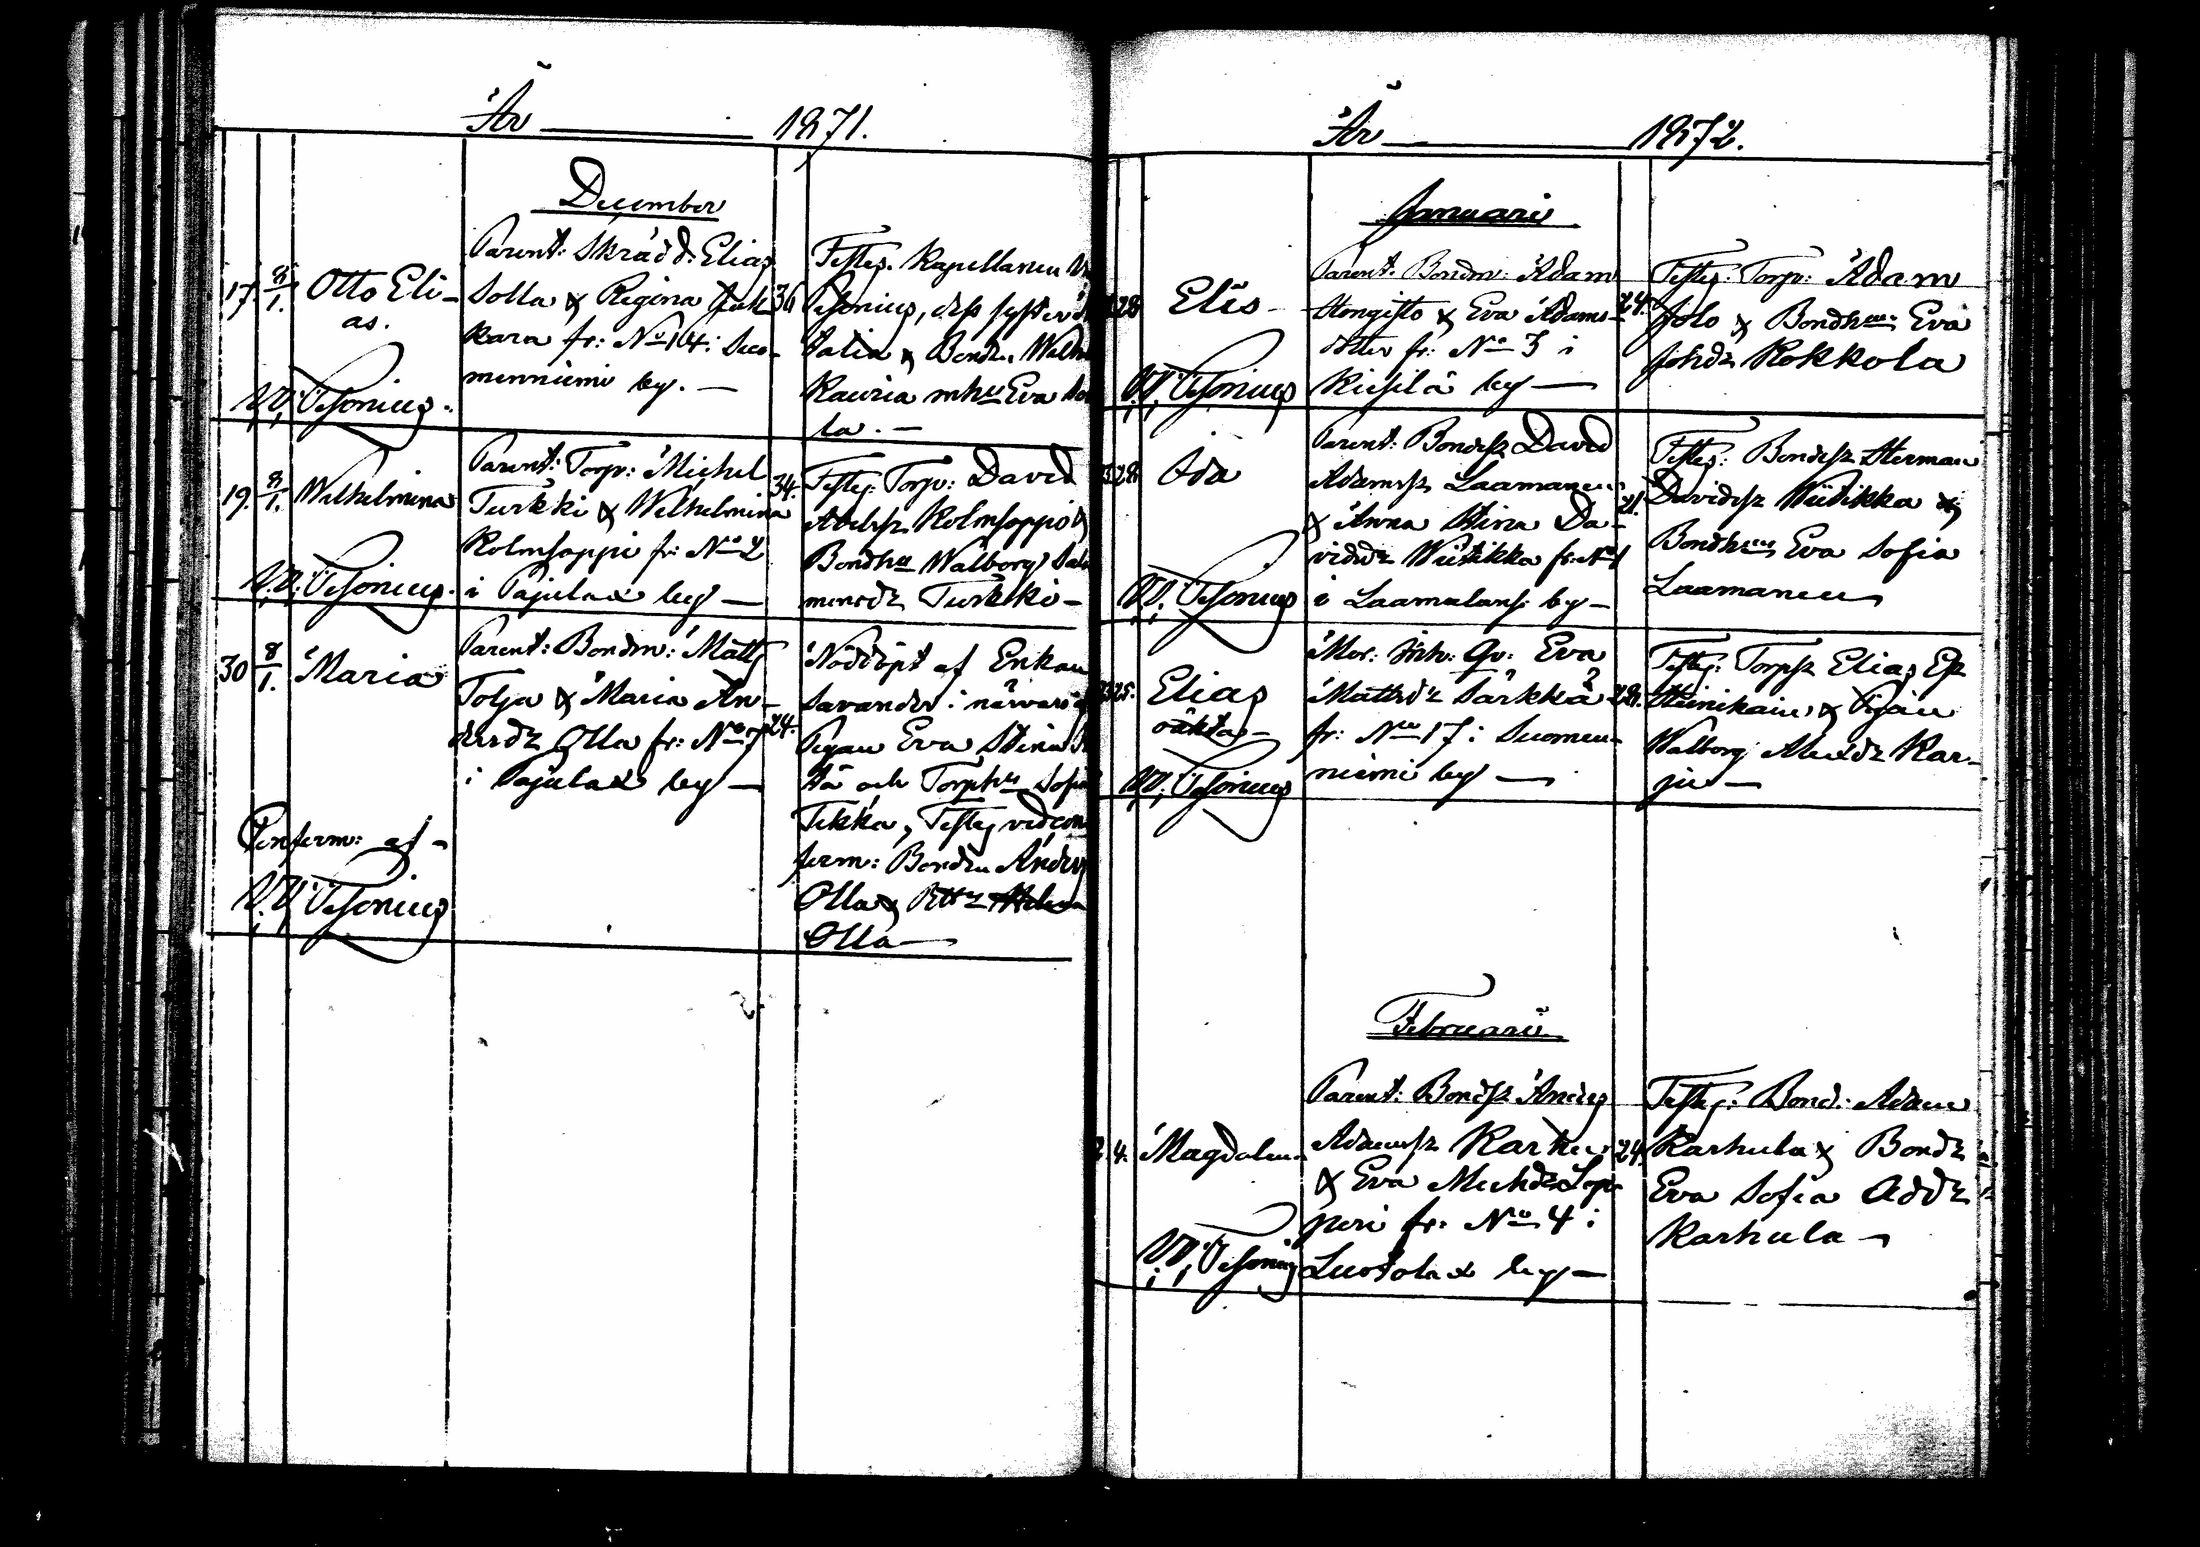 År 1871.
December
17. 8/1. Otto Eli-
as.
V. V. Pesonius.
Parent: Skrädd: Elias
Solla & Regina Juk-
kara fr: No 104 i Suo-
menniemi by. —
36
Testes. Kapellanen
Pesonius, dess syster
talia & Bondn Wilh
Kauria mhu Eva Sol
la. —
19. 8/1. Wilhelmina
V. V. Pesonius.
Parent: Torp: Michel
Turkki & Wilhelmina
Kolmsoppi fr: No 2
i Pajulax by —
34.
Testes: Torp: David
Abelss: Kolmsoppi &
Bondhu Walborg Salo
monsdr Turkki —
30 8/1. Maria
Conferm: af —
V. V. Pesonius
Parent: Bondn: Matts
Tolja & Maria An-
dersdr Olla fr: No 7
i Pajulax by —
24.
Nöddöpt af Enkan
Savander i närvaro af
Pigan Eva Stina
tä och Torphu Sofia
Tikka, Testes vid con
ferm: Bondn Anders
Olla &
Olla —
År 1872.
Januari
28 Elis —
V. V. Pesonius
Parent. Bondn: Adam
Hongisto & Eva Adams-
dotter fr: No 3 i
Kiesilä by —
24.
Testes: Torp: Adam
Jolo & Bondhun Eva
Johdr Kokkola
28 Ida
V. V. Pesonius
Parent: Bondess David
Adamss Laamanen
& Anna Stina Da-
vidsdr Wiitikka fr: No 1
i Laamalans: by —
21.
Testes: Bondess Herman
Davidss Wiitikka &
Bondhun Eva Sofia
Laamanen
25. Elias
oäkta —
V. V. Pesonius
Mor: Inh: Qv: Eva
Mattsdr Särkkä
fr: No 17 i Suomen-
niemi by —
28.
Testes: Torpss Elias Ess
Heinikain & Pigan
Walborg Alexdr Kar-
ju —
Februari
4. Magdalena
V. V. Pesonius
Parent: Bondss Anders
Adamss Karhu
& Eva Michdr Lep-
peri fr: No 4 i
Luotolax by —
24
Testes: Bond: Adam
Karhula & Bondr
Eva Sofia Addr
Karhula —